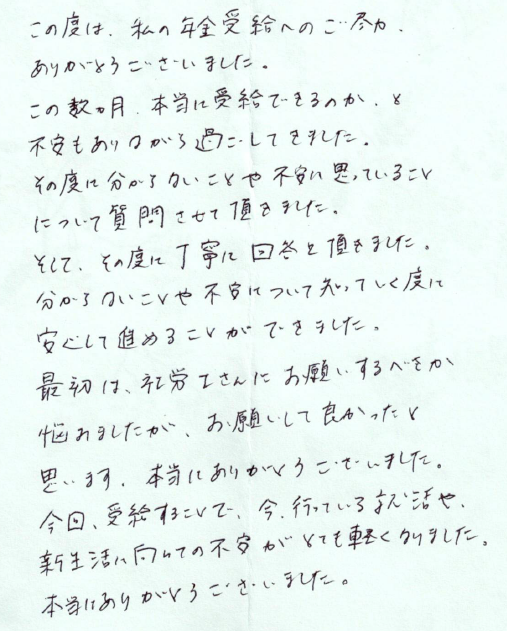 この度は、私の年金受給へのご尽力、
ありがとうございました。
この数ヵ月、本当に受給できるのか、と
不安もありながら過ごしてきました。
その度に分からないことや不安に思っていること
について質問させて頂きました。
そして、その度に丁寧に回答を頂きました。
分からないことや不安について知っていく度に
安心して進めることができました。
最初は、社労士さんにお願いするべきか
悩みましたが、お願いして良かったと
思います。本当にありがとうございました。
今回、受給することで、今、行っている就活や、
新生活に向けての不安がとても軽くなりました。
本当にありがとうございました。